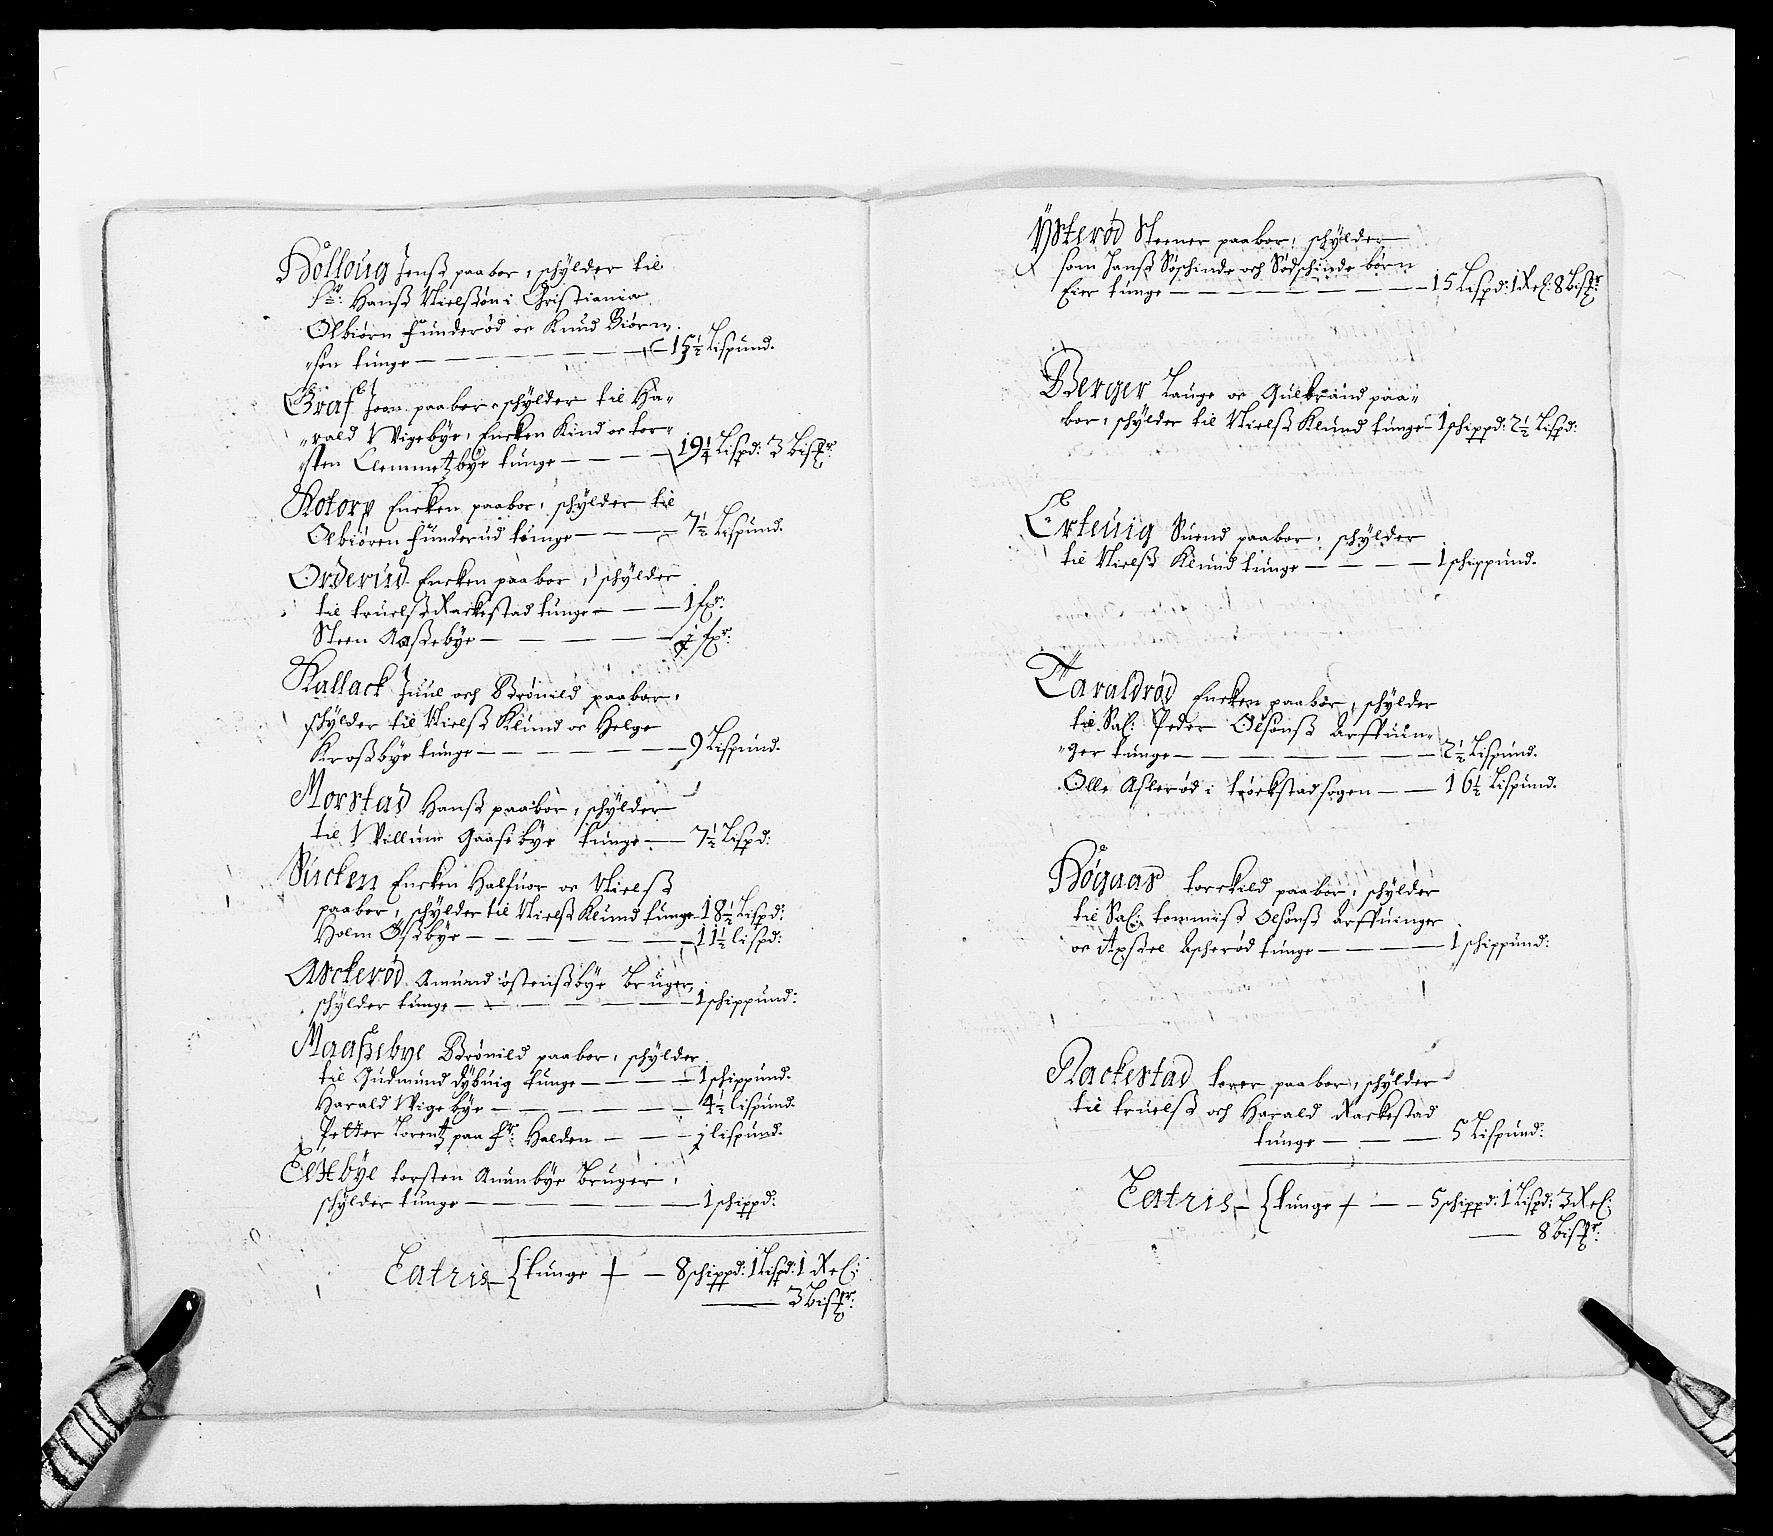 Bölloug Jenß paabor, schÿlder til
Sr: Hanß Nielßön i Christiania
Olbiörn Funderöd oc Knud Biörn
"sen tunge — 15½ Lispund.
Graf Joen paabor, schÿlder til Ha"
"rald Wigebÿe, Encken Kind oc tor"
"sten Clemmetzbÿe tunge — 19¼ Lispd: 3 Bispr:
Kotorp Encken paabor, schÿlder til
Olbiören Funderud tunge — 7½ Lispund.
Orderud Encken paabor, schÿlder
til truelß Rackestad tunge — 1 fpr:
Steen Aaßebÿe — j fpr:
Kallack Juul och Brönild paabor,
schÿlder til Nielß Klund oc Helge
Kroßbÿe tunge — 9 Lispund.
Morstad Hanß paaboer, schÿlder
til Willum Gaasebÿe tunge — 7½ Lispd:
Sücken Encken Halfuor oc Nielß
paabor, schÿlder til Nielß Klund tunge 18½ Lispd:
Holm Ößbÿe — 11½ lispd:
Asckeröd Amund östenßbÿe Bruger,
schÿlder tunge — 1 schippund:
Maaßebye Brönild paabor, schÿlder
til Gudmund Dÿbuig tunge — 1 schippund.
Harald Wigebÿe — 4½ lispund.
Petter Lorentz paa Fr: Halden — j lispund.
Eltbÿe torsten Anunbÿe Bruger,
schÿlder tunge — 1 schippd:
Latris {tunge — 8 schippd: 1 Lispd: 1 Rel:
— 3 Bispr:
Ÿsteröd Steener paabor, schÿlder
som Hanß Söschinde och Södschinde börn
Eier tunge — 15 Lispd: 1 Rel: 8 Bispr:
Berger Lauge oc Gulbrand paa"
bor, schÿlder til Nielß Klund tunge 1 schippd: 2½ Lispd:
Erteuig Suend paabor, schÿlder
til Nielß Klund tunge — 1 schippund.
Taraldröd Encken paaboer, schÿlder
til Sal: Peder Olsönß Arffuin"
"ger tunge — 2½ Lispund.
Olle Asleröd i tröckstad sogen — 16½ Lispund.
Bögaas torckild paaboer, schÿlder
til Sal: tommiß Olsönß Arffuinger
oc Apßel Ascheröd tunge — 1 schippund:
Rackestad torer paaboer, schÿlder
til truelß och Harald Rackestad
tunge — 5 Lispund:
Latris {tunge — 5 schippd: 1 Lispd: 3 Rel:
— 8 Bispr: